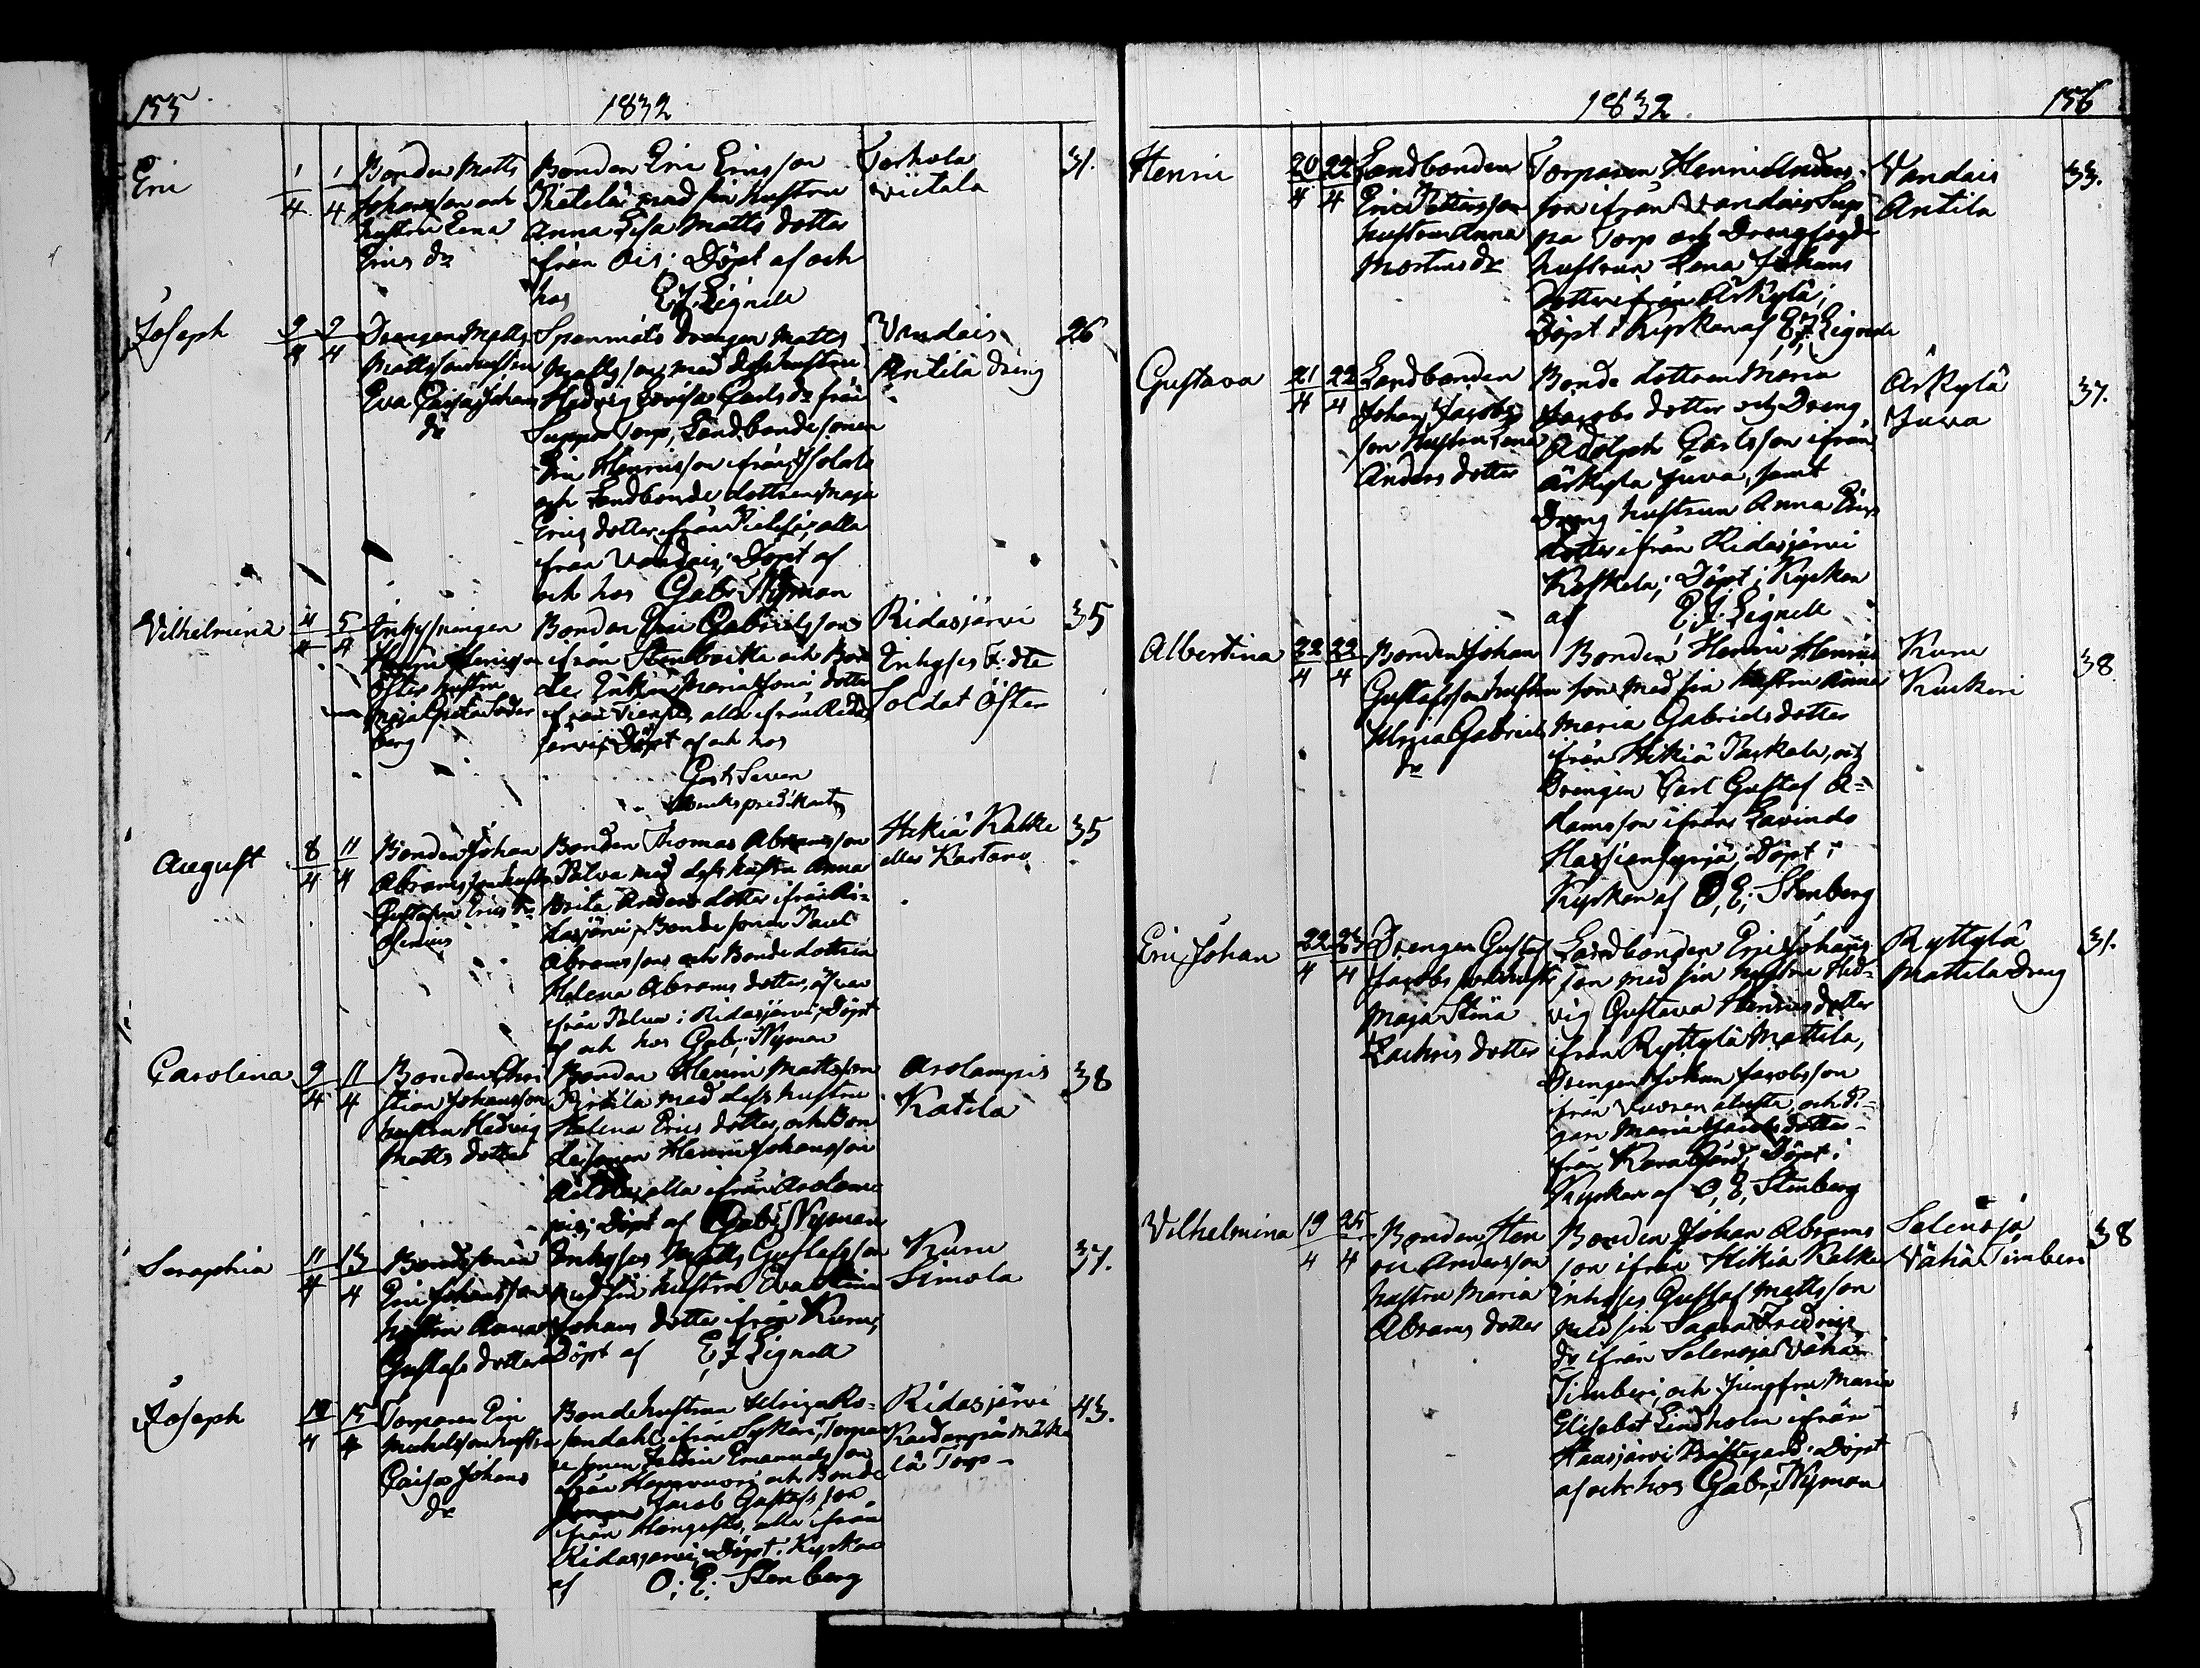 155
1832
Eric
1/4
1/4
Bonden Matts
Johansson och
hustru Lena
Erics dr
Bonden Eric Ericsson
med sin hustru
Anna Lisa Matts dotter
från Ois; Döpt af och
hos E J Lignell
Torhola
wiitala
31.
Joseph
2/4
2/4
Drengen Matts
Mattsson hustru
Eva Caisa Johans
dr
Spanmåls drengen Matts
Mattsson med dess hustru
Hedvig Lovisa Carls dr från
Suppa Torp, Landbonde sonen
Eric Henricsson ifrån Isolato
och Landbonde dottren Maja
Erics dotter ifrån alla
från Vandais; Döpt af
och hos Gabr: Nyman
Vandais
Antila dräng
26
Vilhelmina
4/4
5/4
Inhysningen
Henric Henricsson
Öster hustru
Maja Greta Söder
berg
Bonden Eric Gabrielsson
ifrån Stenbacka och Bon
de Enkan Maria dotter
ifrån alla ifrån Rida
järvi; Döpt af och hos
Gust:
predikant
Ridasjärvi
Inhyses F: dte
Soldat Öster
35
August
8/4
11/4
Bonden Johan
Abramsson hustru
Gustafva Erics dr
Bonden Thomas Abramsson
Palva med dess hustru Anna
Brita Anders dotter ifrån Ri-
dasjärvi, Bonde sonen Paul
Abramsson och Bonde dottren
Helena Abrams dotter,
från Palva i Ridasjärvi; Döpt
af och hos Gabr: Nyman
Hikiä Kalke
eller Kartano
35
Carolina
9/4
11/4
Bonden Chri
stian Johansson
hustru Hedvig
Matts dotter
Bonden Henric Mattsson
Perttila med dess hustru
Helena Erics dotter, och Bon
de sonen Henric Johansson
alla ifrån Arolam
pis; Döpt af Gabr: Nyman
Arolampis
Katila
38
Seraphia
11/4
13/4
Bonde sonen
Eric Johansson
hustru Anna
Gustafs dotter
Inhyses Matts Gustafsson
med sin hustru Eva Stina
Johans dotter ifrån Kuru;
Döpt af E J Lignell
Kuru
Simola
37.
Joseph
12/4
15/4
Torparen Eric
Michelsson hustru
Caisa Johans
dr
Bonde hustrun Ulrica Ro-
sendahl ifrån Sykäri, Torpar
e sonen Emanuelsson
från och Bonde
sonen Jacob Gustafsson
ifrån alla ifrån
Ridasjärvi; Döpt i Kyrkan
af O: E: Stenberg
Ridasjärvi
Kardanpää Mäke
lä Torp
43.
1832.
156
Henric
20/4
22/4
Landbonden
Eric Pettersson
hustru Anna
Mårtens dr
Torparen Henric Anders-
son ifrån Vandais Sup
pa Torp och Dreng
hustrun Lena Johans
dotter ifrån Ärkylä;
Döpt i Kyrkan af E; J: Lignell
Vandais
Antila
33.
Gustava
21/4
22/4
Landbonden
Johan Jacobs
son hustru Lena
Anders dotter
Bonde dottren Maria
Jacobs dotter och Dreng
Adolph Carlsson ifrån
Ärkylä Juva, samt
Dreng hustrun Anna Erics
dotter ifrån Ridasjärvi
Keskela; Döpt i Kyrkan
af E. J. Lignell
Ärkylä
Juva
37.
Albertina
22/4
22/4
Bonden Johan
Gustafsson hustru
Ulrica Gabriels
dr
Bonden Henric Henrics
son med sin hustru Anna
Maria Gabriels dotter
ifrån Hikiä Paskala, och
Drengen Carl Gustaf A-
damsson ifrån Lavinda
Döpt i
Kyrkan af O; E; Stenberg
Kuru
Kuckari
38
Eric Johan
22/4
23/4
Drengen Gustaf
Jacobsson hustru
Maja Stina
Zachris dotter
Landbonden Eric Johans
son med sin hustru Hed-
vig Gustava Henrics dotter
ifrån Ryttylä Mattila,
Drengen Johan Jacobsson
ifrån och Pi-
gan Maria Jacobs dotter
från Kara Gård; Döpt i
Kyrkan af O, E, Stenberg
Ryttylä
Mattila Dreng
31.
Vilhelmina
19/4
25/4
Bonden Hen
ric Andersson
hustru Maria
Abrams dotter
Bonden Johan Abrams
son ifrån Hikiä Kalke
Inhyses Gustaf Mattsson
med sin Saara Fredrics
dr ifrån Selensjä Vähä
Timberi, och Jungfru Maria
Elisabet Lindholm ifrån
Hausjärvi Prästegård; Döpt
af och hos Gabr; Nyman
Selensjä
Vähä Timberi
38